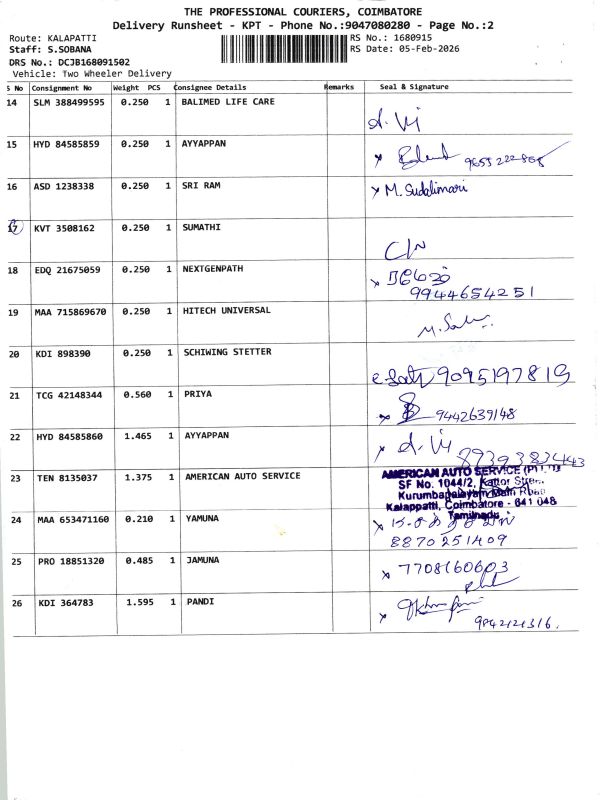 THE PROFESSIONAL COURIERS, COIMBATORE
Delivery Runsheet - KPT - Phone No.:9047080280 - Page No.:2
Route: KALAPATTI
RS No.: 1680915
Staff: S.SOBANA
RS Date: 05-Feb-2026
DRS No.: DCJB168091502
Vehicle: Two Wheeler Delivery
S No Consignment No Weight PCS Consignee Details Remarks Seal & Signature
14 SLM 388499595 0.250 1 BALIMED LIFE CARE
15 HYD 84585859 0.250 1 AYYAPPAN
16 ASD 1238338 0.250 1 SRI RAM M. Sudalimari
17 KVT 3508162 0.250 1 SUMATHI
18 EDQ 21675059 0.250 1 NEXTGENPATH
9944654251
19 MAA 715869670 0.250 1 HITECH UNIVERSAL
20 KDI 898390 0.250 1 SCHIWING STETTER
9095197819
21 TCG 42148344 0.560 1 PRIYA
9442639148
22 HYD 84585860 1.465 1 AYYAPPAN
23 TEN 8135037 1.375 1 AMERICAN AUTO SERVICE
AMERICAN AUTO SERVICE (P) LTD
SF No. 1044/2, Kattor Street
Kurumbapalayam Main Road
Kalappatti, Coimbatore - 641 048
Tamilnadu
24 MAA 653471160 0.210 1 YAMUNA
8870251409
25 PRO 18851320 0.485 1 JAMUNA
7708160603
26 KDI 364783 1.595 1 PANDI
9842121316.